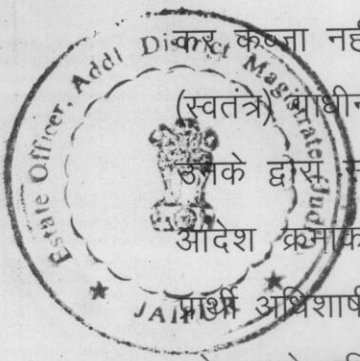 कर कब्जा नहीं
(स्वतंत्रे)
उनके द्वारा
आदेश क्रमांक
प्रार्थी अधिशाषी
Estate Officer, Addl District Magistrate, Jud
JAIPUR